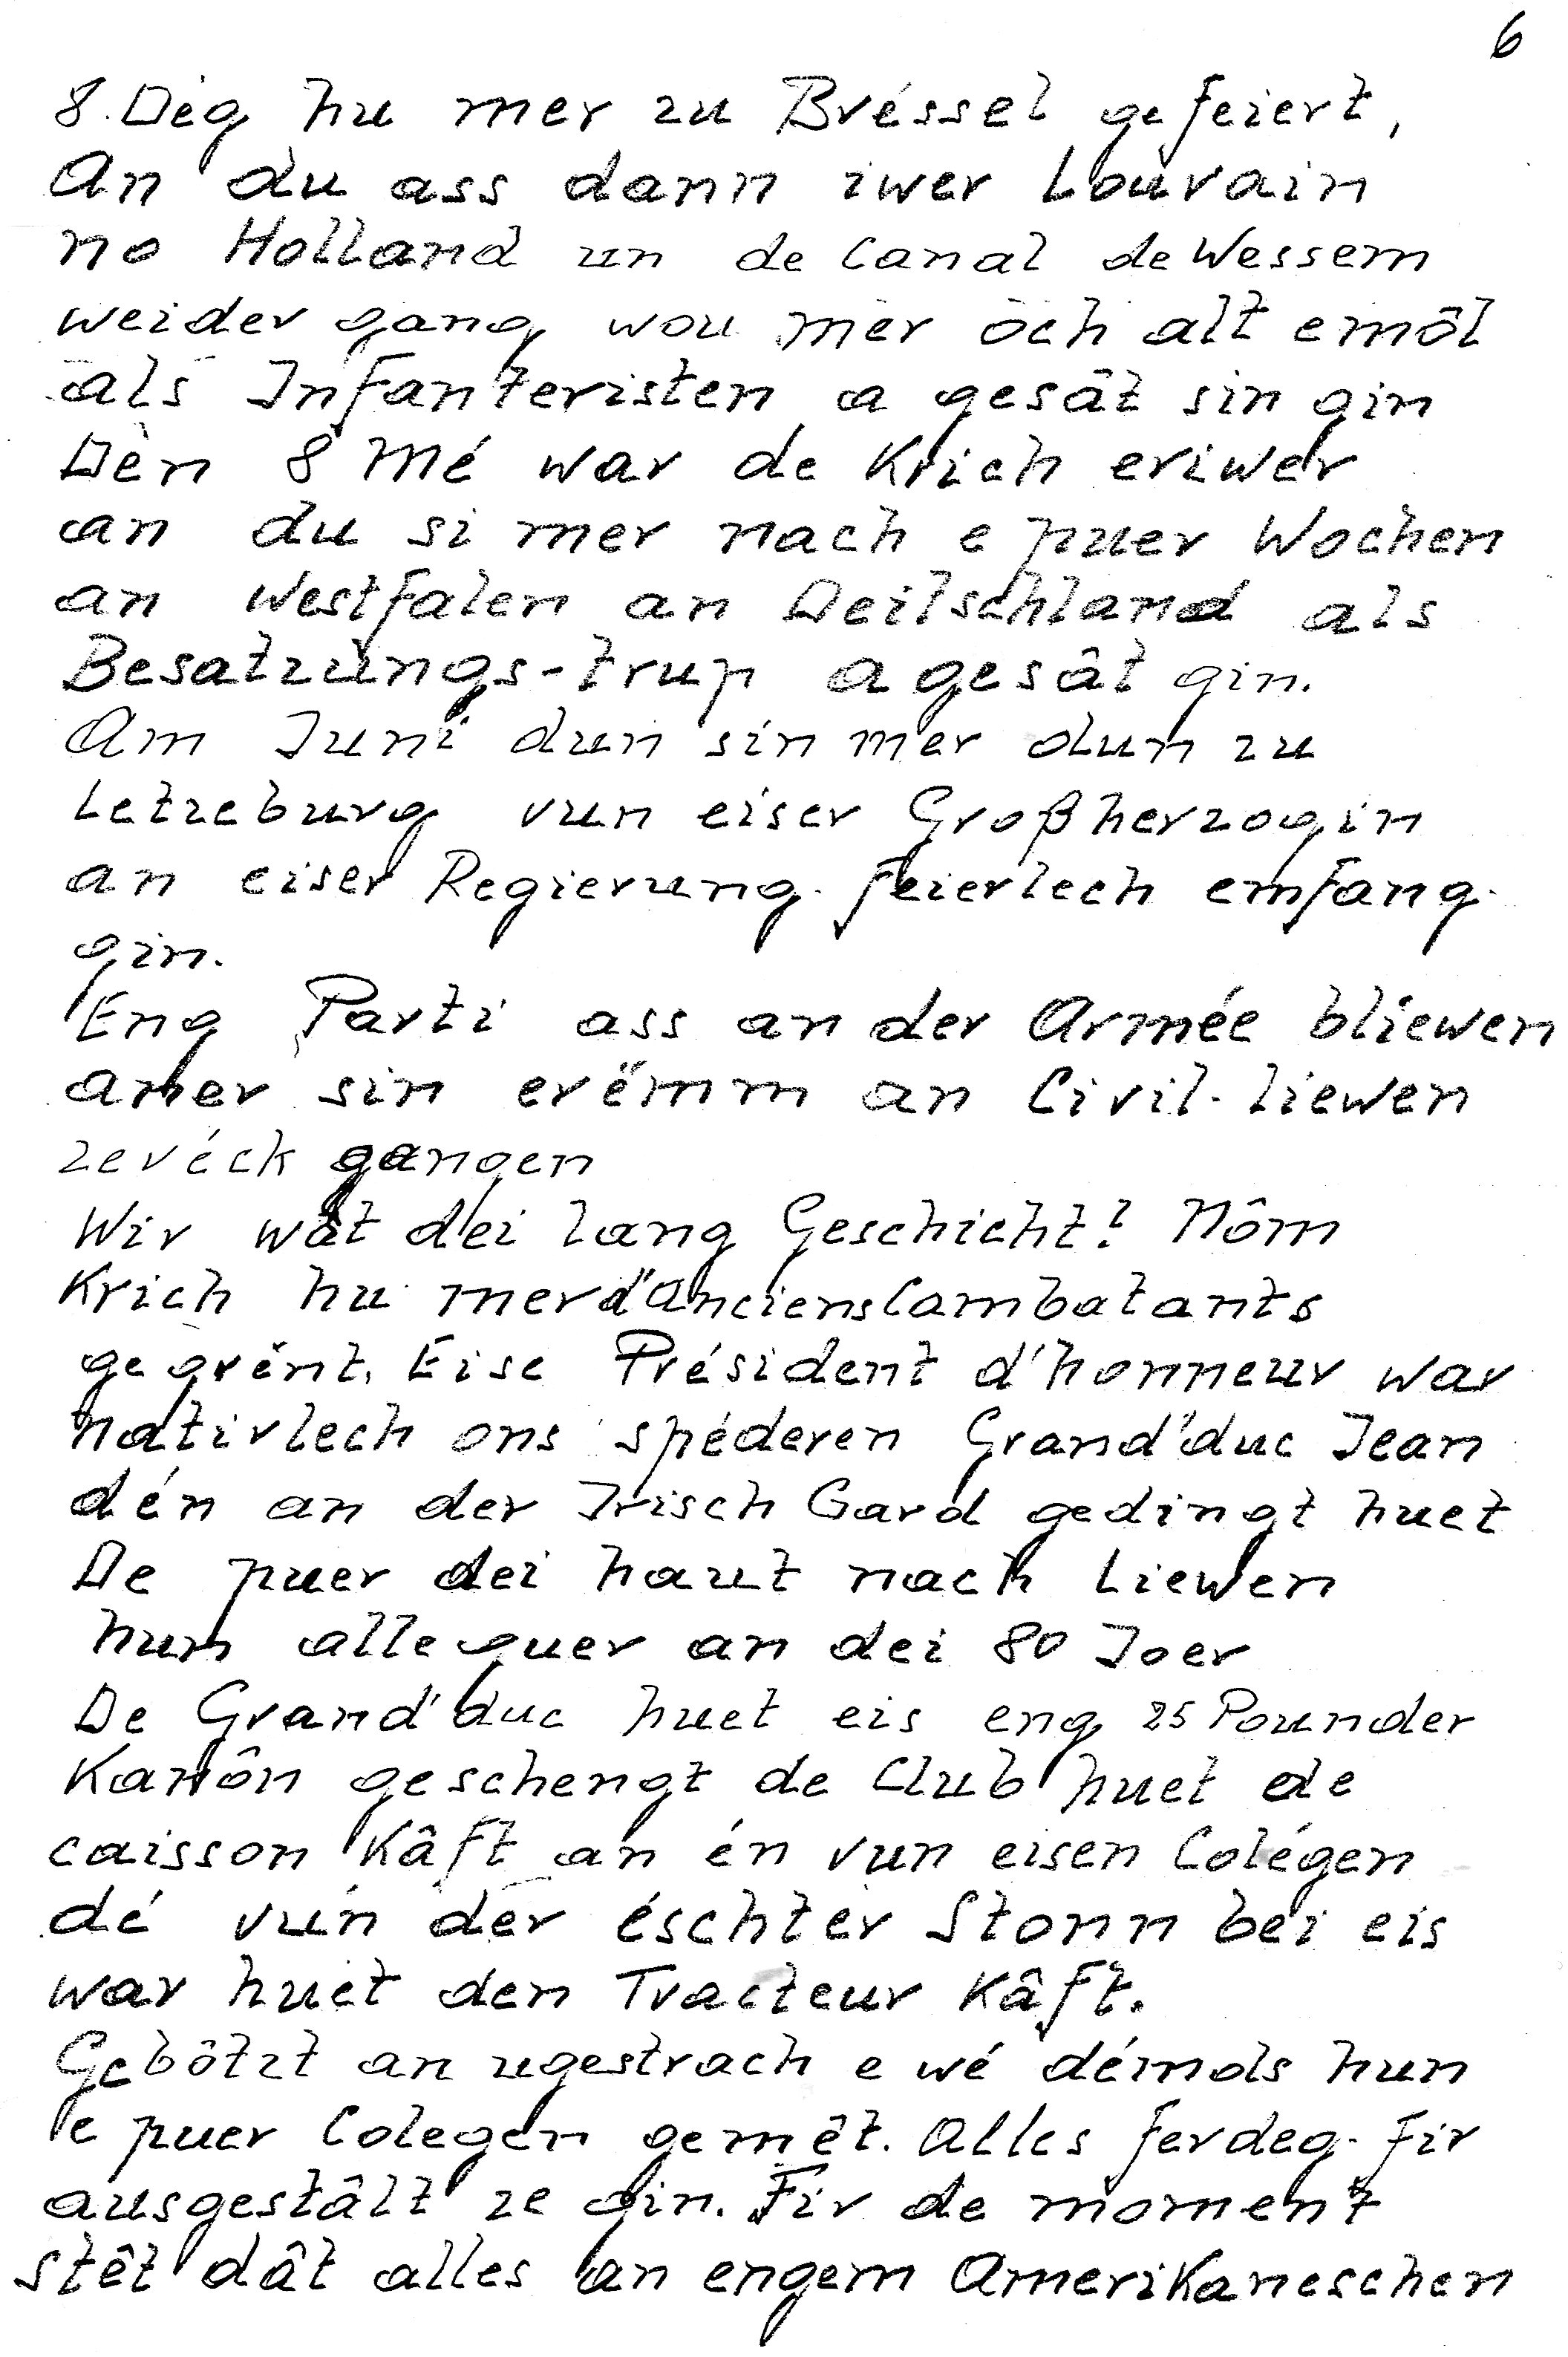 6
8. Dég hu mer zu Bréssel gefeiert,
An du ass dann iwer Louvain
no Holland un de Canal de Wessem
weider gang wou mer och alt emôl
als Infanteristen a gesât sin gin
Dèn 8 Mé war de Krich eriwer
an du si mer nach e puer Wochen
an Westfalen an Deitschland als
Besatzungs-trup a gesât gin.
Am Juni dun sin mer dun zu
Letzeburg vun eiser Großherzogin
an eiser Regierung feierlech emfang
gin.
Eng Parti ass an der Armée bliewen
aner sin erëmm an Civil-liewen
zeréck gangen
Wir wat dei lang Geschicht! Nôm
Krich hu mer d'Anciens Combatants
gegrënt. Eise Président d'honneur war
natirlech ons spéderen Grand'duc Jean
dén an der Irisch Gard gedingt huet
De puer dei haut nach Liewen
hun alleguer an dei 80 Joer
De Grand'duc huet eis eng 25 Pounder
Kanôn geschengt de Club huet de
caisson Kâft an én vun eisen Colégen
dé vun der éschter Stonn bei eis
war huet den Tracteur Kâft.
Gebôtzt an ugestrach e wé démols hun
e puer Colegen gemêt. Alles ferdeg fir
ausgestâlt ze gin. Fir de moment
Stêt dât alles an engem Amerikaneschen